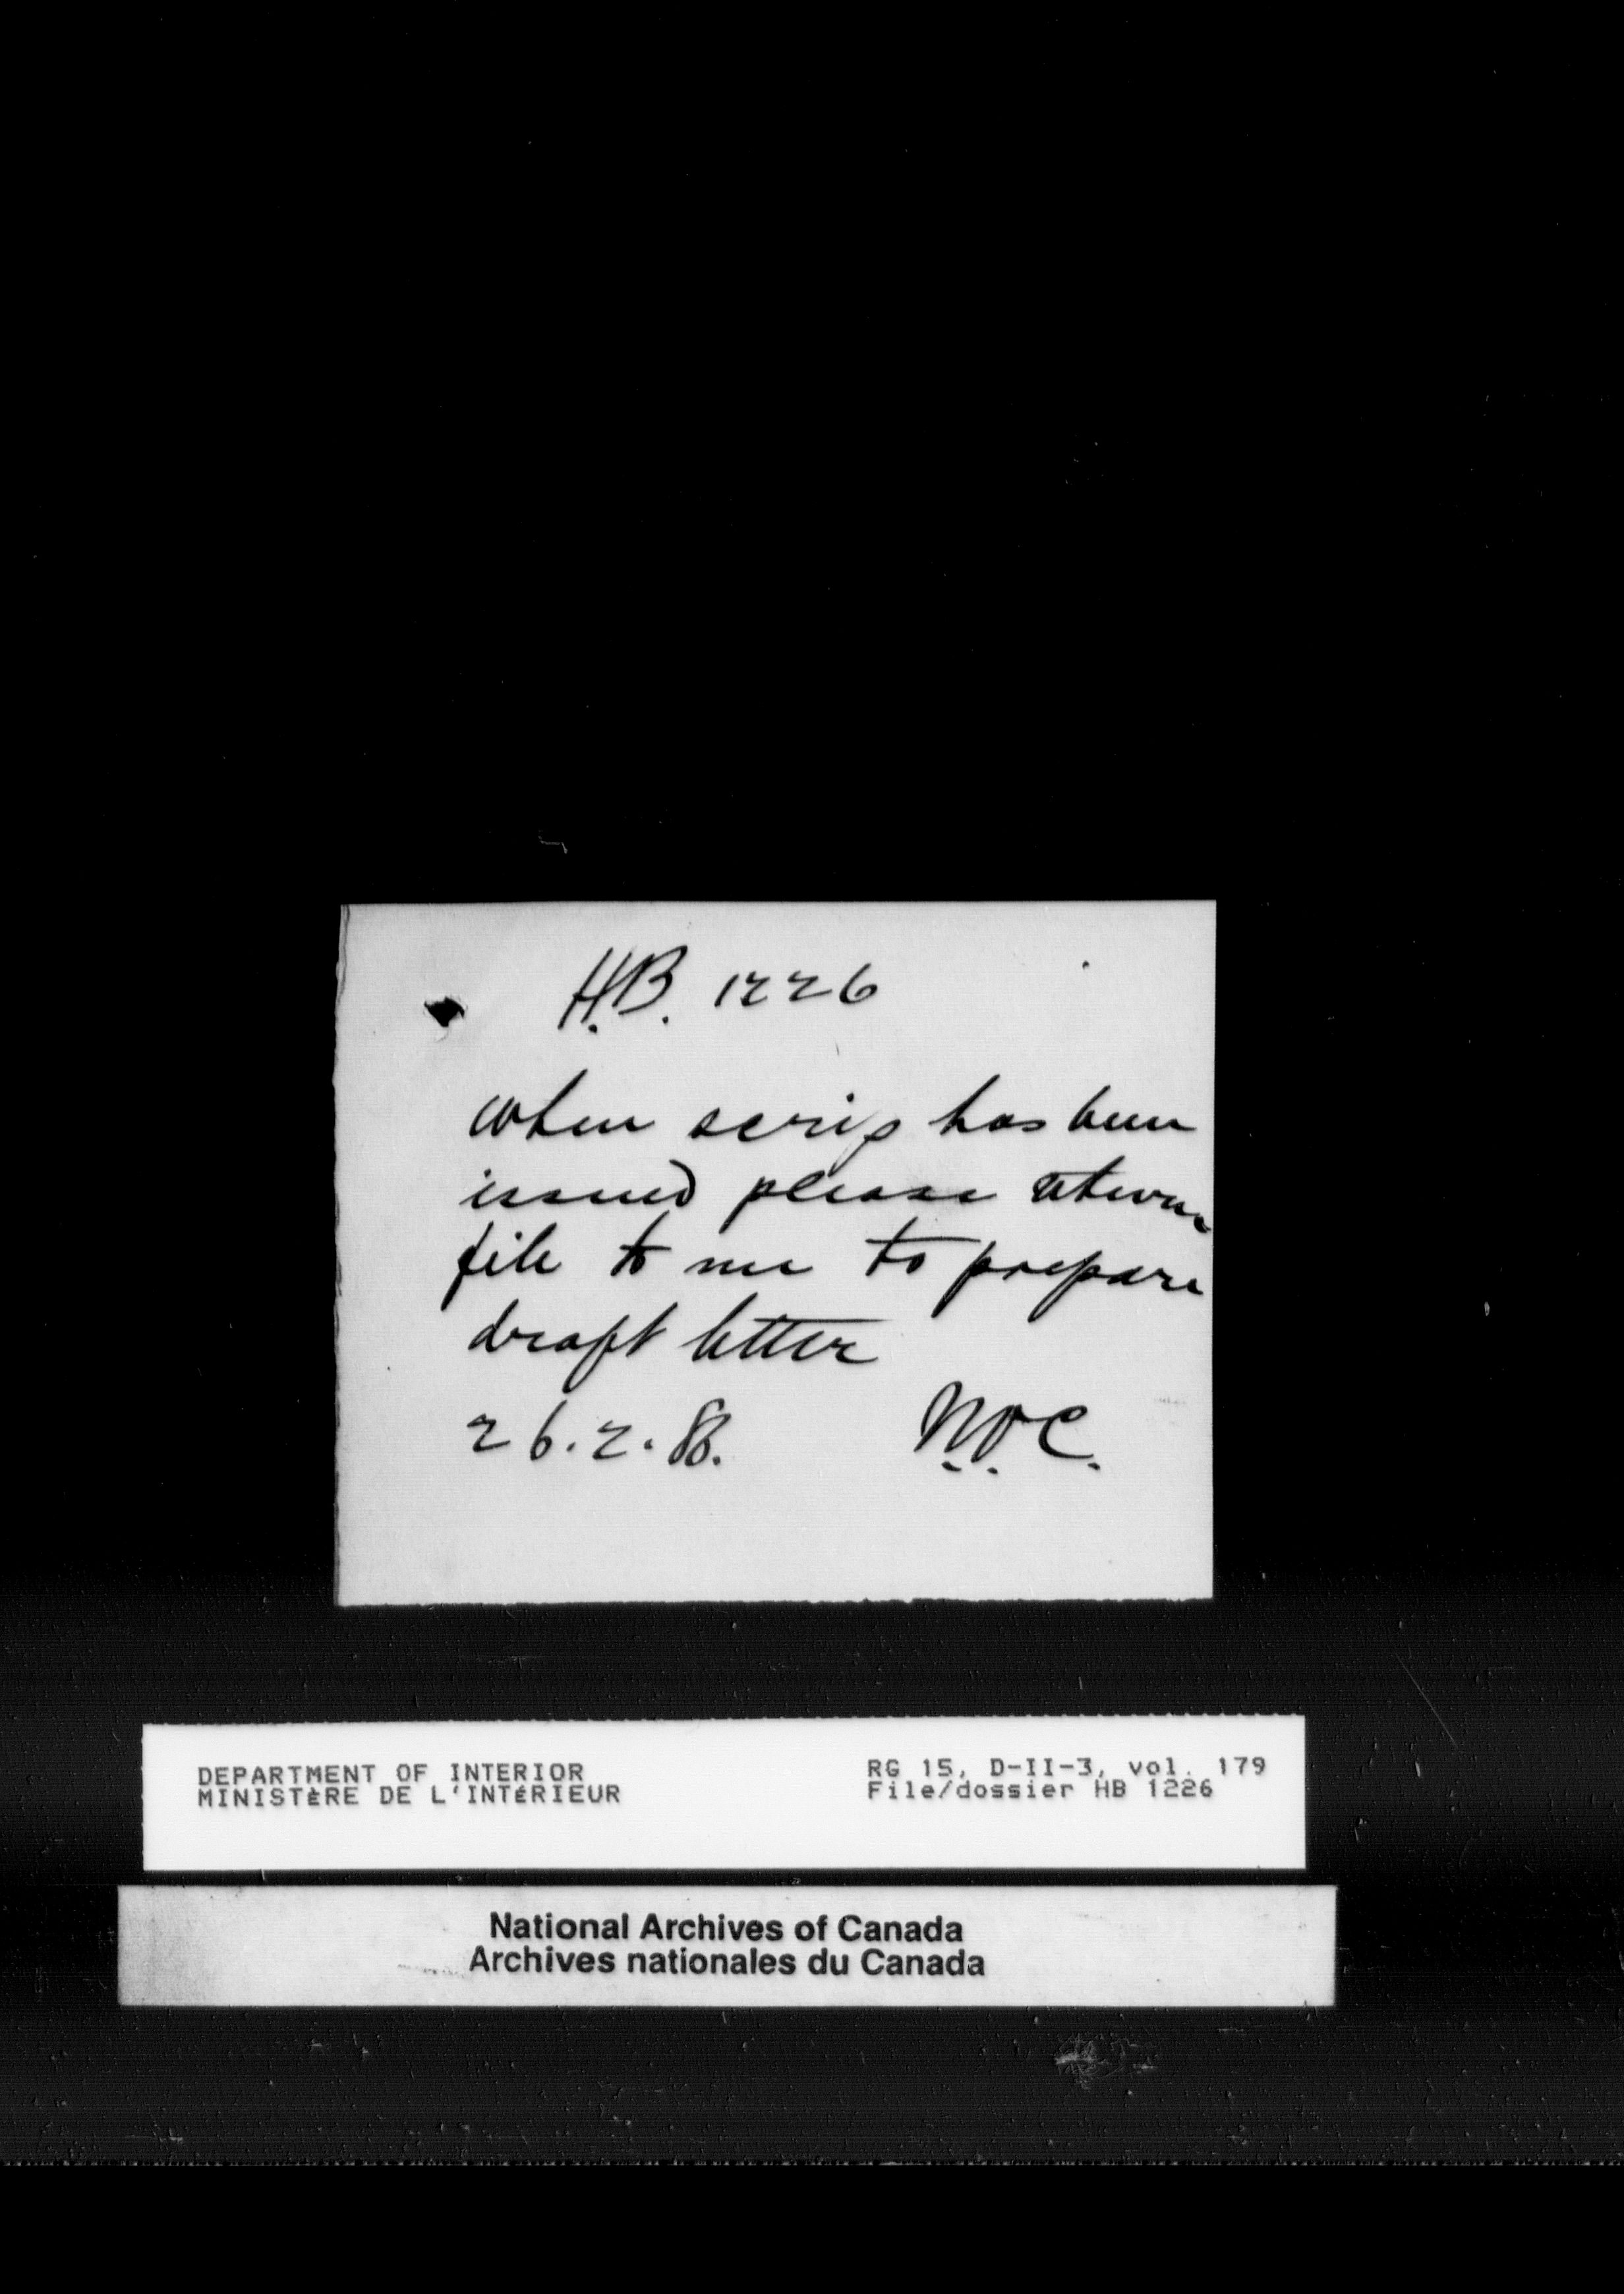 H.B. 1226
when scrip has been
issued please return
file to me to prepare
draft letter
26.2.88. N.O.C.
DEPARTMENT OF INTERIOR
MINISTÈRE DE L'INTÉRIEUR
RG 15, D-II-3, vol. 179
File/dossier HB 1226
National Archives of Canada
Archives nationales du Canada